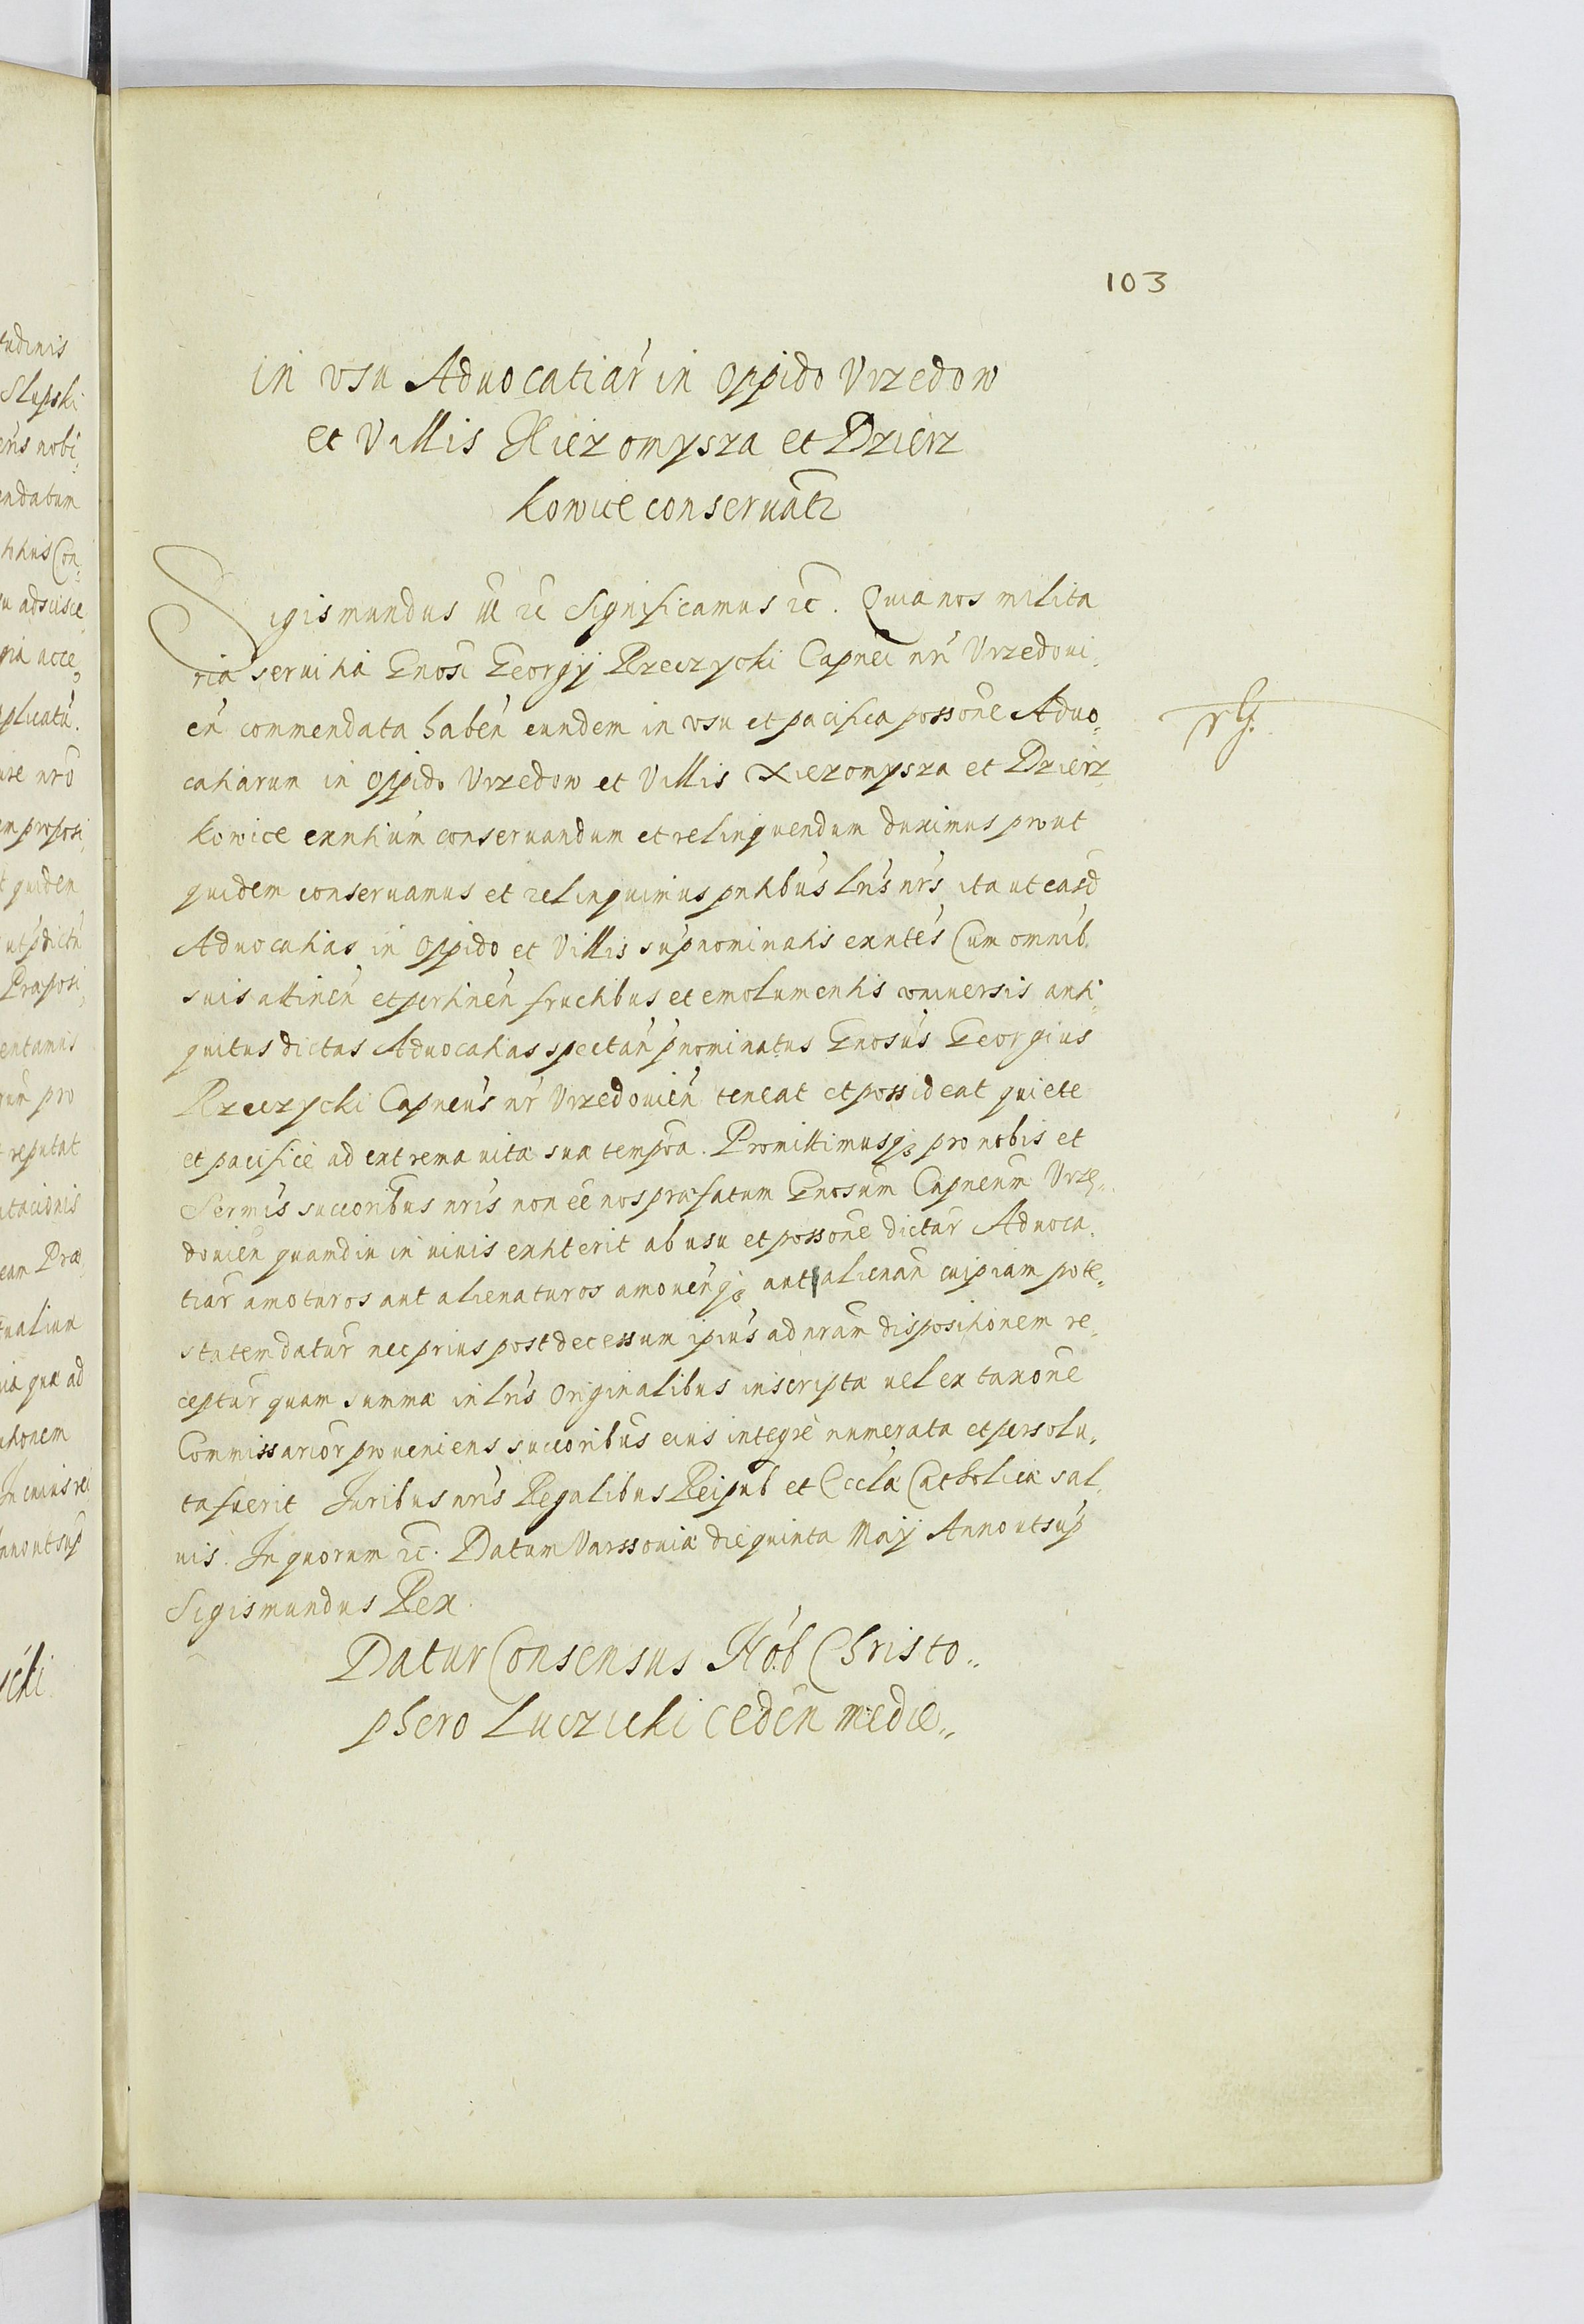 103
in vsu Aduocatiar in oppido Vrzedow
et Villis Xiezomysza et Dzierz
kowice conseruatr
Sigismundus III etc Significamus etc. Quia nos milita
ria seruitia Gnosi Georgij Rzeczycki Capnei nri Vrzedoui
en commendata haben eundem in vsu et pacifica possone Aduo
catiarum in oppido Vrzedow et Villis Xiezomysza et Dzierz
kowice exntium conseruandum et relinquendum duximus prout
quidem conseruamus et relinquimus pntibus lris nris, ita ut easd
Aduocatias in oppido et Villis supnominatis exntes Cum omnib.
suis attinen et pertinen fructibus et emolumentis vniuersis anti
quitus dictas Aduocatias spectan pnominatus Gnosus Georgius
Rzeczycki Capneus nr Vrzedouien teneat et possideat quiete
et pacifice ad extrema vitæ suæ tempora. Promittimusq; pro nobis et
Sermis succoribus nris non ee nos præfatum Gnosum Capneum Vrze
douien quamdiu in viuis extiterit ab usu et possone dictar Aduoca
tiar amoturos aut alienaturos amouenq; aut alienan cuipiam pote
statem datur nec prius post decessum ipius ad nram dispositionem re
ceptur quam summa in lris Originalibus inscripta uel ex taxone
Commissarior proueniens succoribus eius integre numerata et persolu
ta fuerit Juribus nris Regalibus Reipub et Eccla Catholicæ sal
uis. In quorum etc. Datum Varssouiæ die quinta Maij Anno ut sup
Sigismundus Rex.
Datur Consensus Nob Christo
phero Luczicki ceden medie